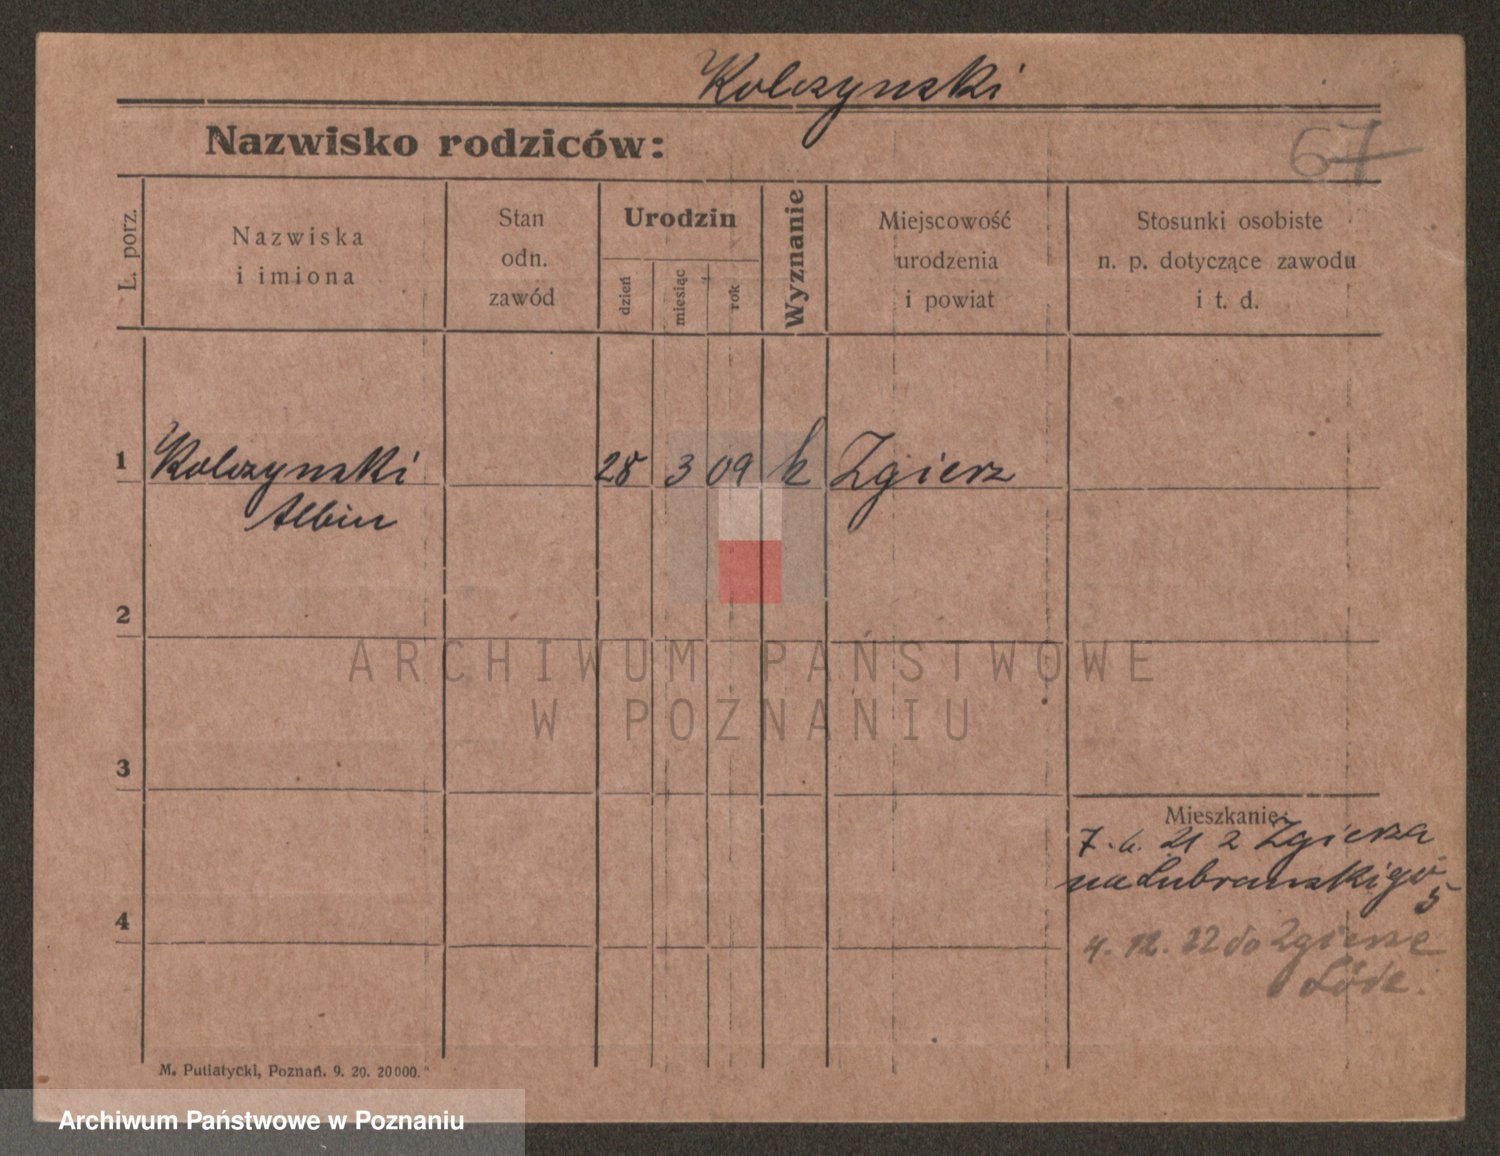 Kolczynski
Nazwisko rodziców:
67
L. porz.
Nazwiska
i imiona
Stan
odn.
zawód
Urodzin
dzień
miesiąc
rok
Wyznanie
Miejscowość
urodzenia
i powiat
Stosunki osobiste
n. p. dotyczące zawodu
i t. d.
1 Kolczynski 28 3 09 k Zgierz
Albin
2
ARCHIWUM PAŃSTWOWE
W POZNANIU
3
Mieszkanie:
7. 21 z Zgierza
na Lubranskigo
5
4
4. 12. 22 do Zgierze
M. Putiatycki, Poznań. 9. 20. 20000.
Archiwum Państwowe w Poznaniu